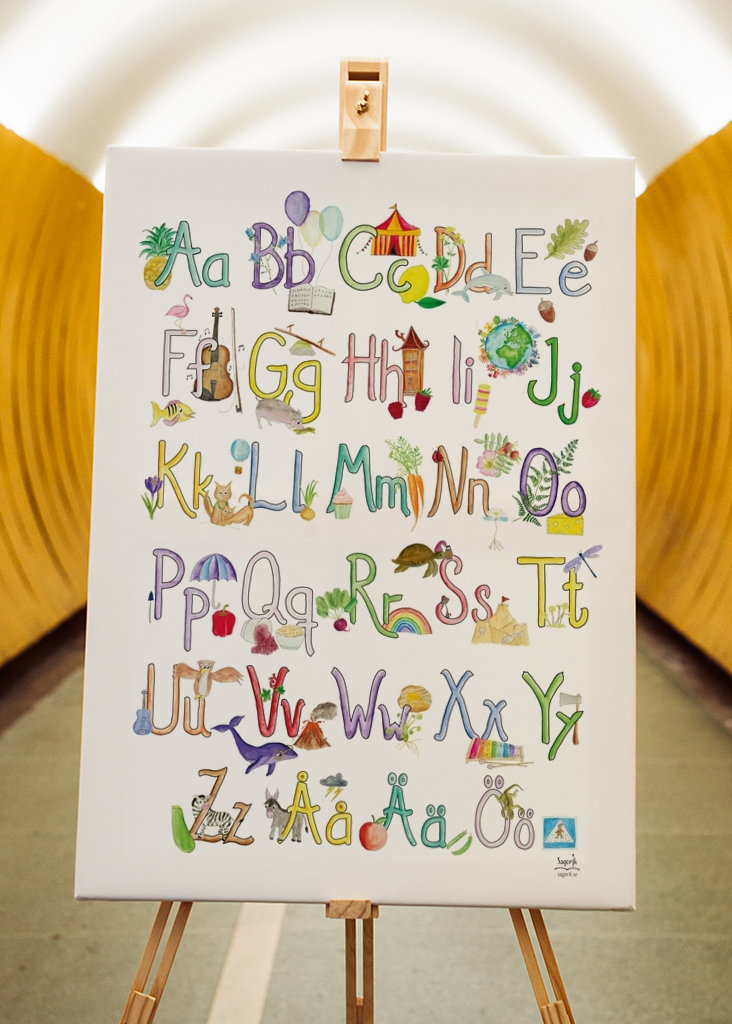 Aa Bb Cc Dd Ee
Ff Gg Hh Ii Jj
Kk Ll Mm Nn Oo
Pp Qq Rr Ss Tt
Uu Vv Ww Xx Yy
Zz Åå Ää Öö
Sagorik
sagorik.se